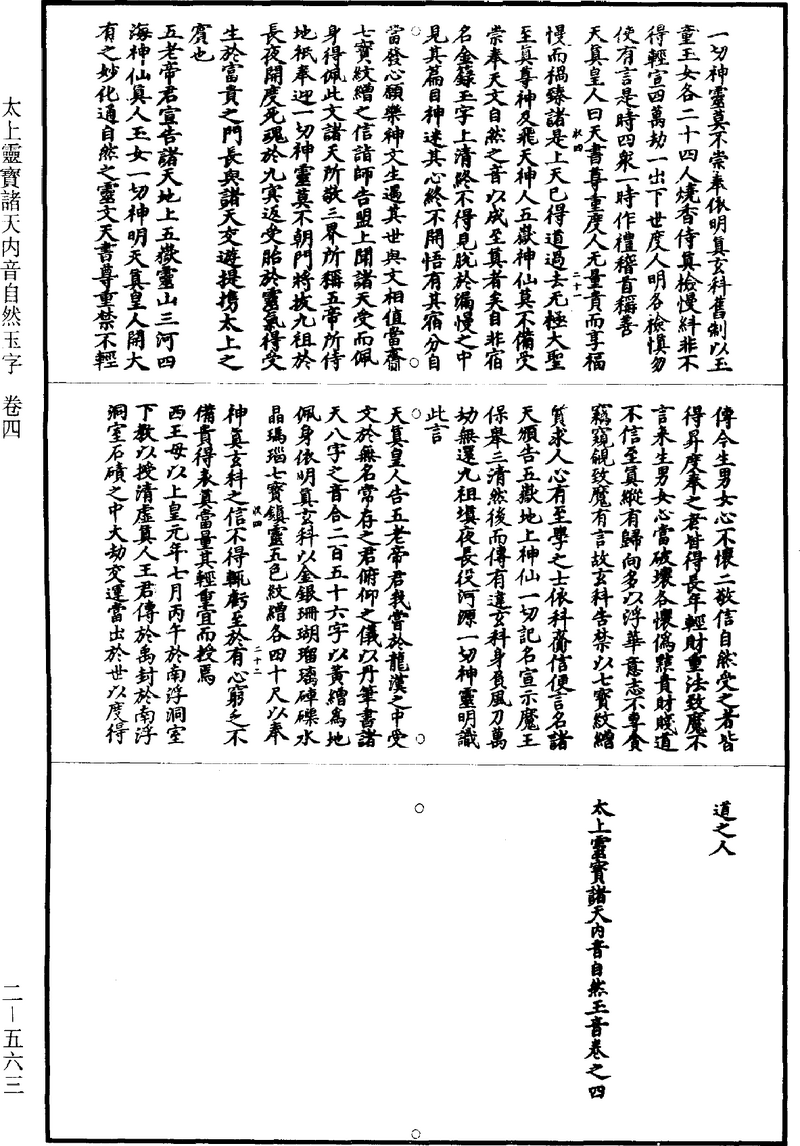 一切神靈莫不崇奉依明真玄科舊制以玉
童玉女各二十四人燒香侍真檢慢糾非不
得輕宣四萬劫一出下世度人明各檢慎勿
使有言是時四衆一時作禮稽首稱善
天真皇人曰天書尊重度人无量貴而享福
慢而禍臻諸是上天已得道過去无極大聖
至真尊神及飛天神人五嶽神仙莫不備受
崇奉天文自然之音以成至真者矣自非宿
名金籙玉字上清終不得見脫於漏慢之中
見其篇目神迷其心終不開悟有其宿分自
當發心願樂神文生遇其世與文相值當齎
七寶紋繒之信詣師告盟上聞諸天受而佩
身得佩此文諸天所敬三界所稱五帝所侍
地祇奉迎一切神靈莫不朝門將拔九祖於
長夜開度死魂於九冥返受胎於靈氣得受
生於富貴之門長與諸天交遊提携太上之
賓也
五老帝君宣告諸天地上五嶽靈山三河四
海神仙真人玉女一切神明天真皇人開大
有之妙化通自然之靈文天書尊重禁不輕
傳今生男女心不懷二敬信自然受之者皆
得昇度奉之君皆得長年輕財重法致魔不
言來生男女心當破壞各懷僞嫉貴財賤道
不信至真縱有歸向多以浮華意志不專貪
竊窺覦致魔有言故玄科告禁以七寶紋繒
質求人心有至學之士依科齎信便言名諸
天頒告五嶽地上神仙一切記名宣示魔王
保舉三清然後而傳有違玄科身負風刀萬
劫無還九祖塡夜長役河源一切神靈明識
此言
天真皇人告五老帝君我嘗於龍漢之中受
文於無名常存之君俯仰之儀以丹筆書諸
天八字之音合二百五十六字以黃繒爲地
佩身依明真玄科以金銀珊瑚瑠璃硨磲水
晶瑪瑙七寶鎮靈五色紋繒各四十尺以奉
神真玄科之信不得輒虧至於有心窮乏不
備貴得表真當量其輕重宜而授焉
西王母以上皇元年七月丙午於南浮洞室
下教以授清虛真人王君傳於禹封於南浮
洞室石磧之中大劫交運當出於世以度得
道之人
太上靈寶諸天内音自然玉音卷之四
太上靈寶諸天内音自然玉字 卷四
二—五六三